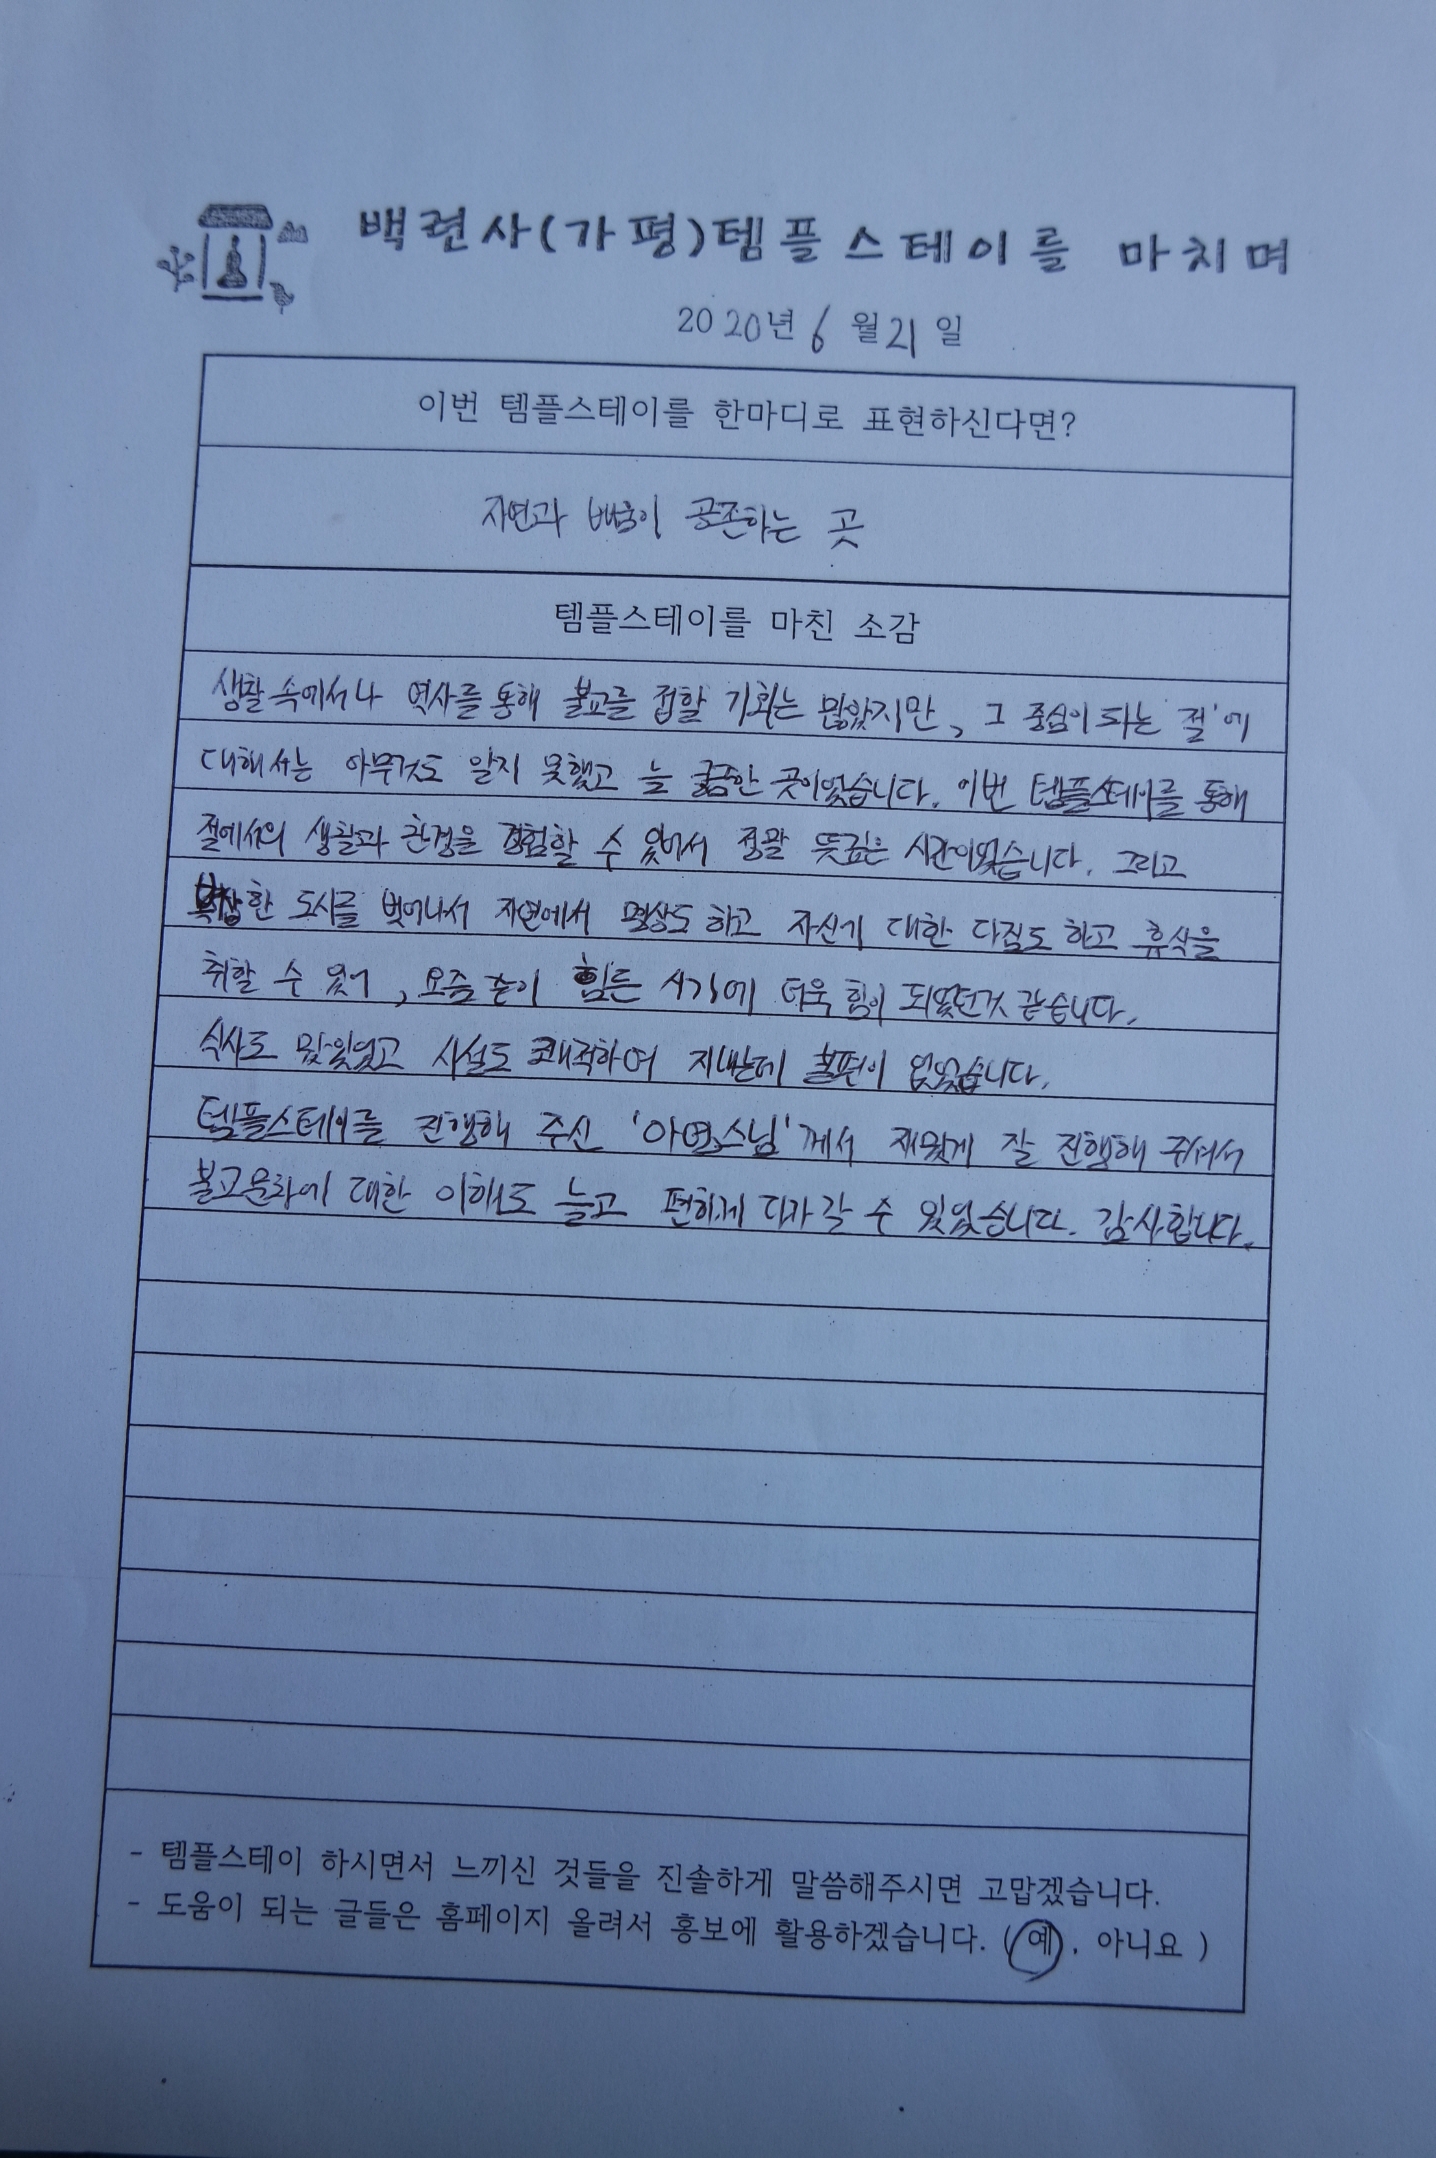 백련사(가평)템플스테이를 마치며
2020년 6월 21일
이번 템플스테이를 한마디로 표현하신다면?
자연과 배움이 공존하는 곳
템플스테이를 마친 소감
생활 속에서나 역사를 통해 불교를 접할 기회는 많았지만, 그 중심이 되는 '절'에
대해서는 아무것도 알지 못했고 늘 궁금한 곳이었습니다. 이번 템플스테이를 통해
절에서의 생활과 환경을 경험할 수 있어서 정말 뜻깊은 시간이었습니다. 그리고
복잡한 도시를 벗어나서 자연에서 명상도 하고 자신에 대한 다짐도 하고 휴식을
취할 수 있어, 요즘 같이 힘든 시기에 더욱 힘이 되었던것 같습니다.
식사도 맛있었고 시설도 쾌적하여 지내는데 불편이 없었습니다.
템플스테이를 진행해 주신 '아연스님'께서 재밌게 잘 진행해 주셔서
불교문화에 대한 이해도 늘고 편하게 다가갈 수 있었습니다. 감사합니다.
- 템플스테이 하시면서 느끼신 것들을 진솔하게 말씀해주시면 고맙겠습니다.
- 도움이 되는 글들은 홈페이지 올려서 홍보에 활용하겠습니다. (예, 아니요 )